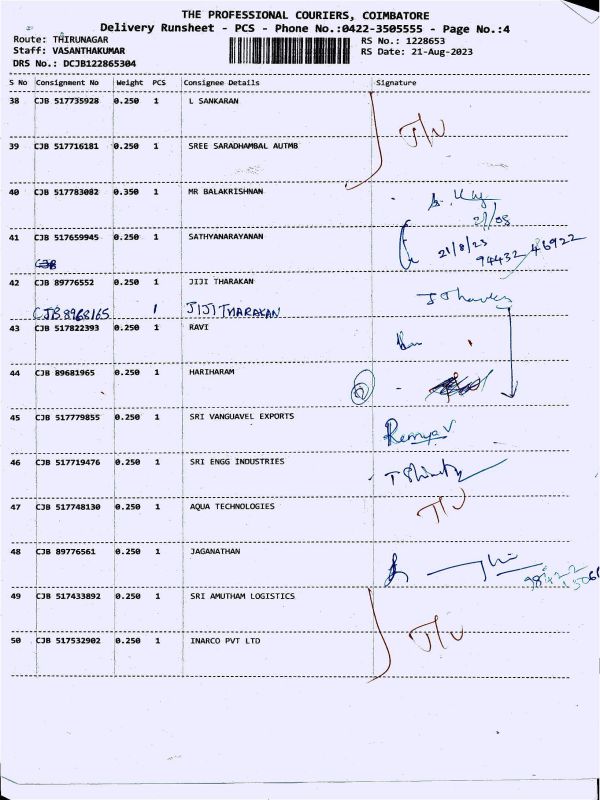 THE PROFESSIONAL COURIERS, COIMBATORE
Delivery Runsheet - PCS - Phone No.:0422-3505555 - Page No.:4
Route: THIRUNAGAR
RS No.: 1228653
Staff: VASANTHAKUMAR
RS Date: 21-Aug-2023
DRS No.: DCJB122865304
S No Consignment No Weight PCS Consignee Details Signature
38 CJB 517735928 0.250 1 L SANKARAN
39 CJB 517716181 0.250 1 SREE SARADHAMBAL AUTMB
40 CJB 517783082 0.350 1 MR BALAKRISHNAN
41 CJB 517659945 0.250 1 SATHYANARAYANAN
21/8/23
94432 46922
CJB
42 CJB 89776552 0.250 1 JIJI THARAKAN
CJB8968165 1 JIJI THARAKAN
43 CJB 517822393 0.250 1 RAVI
44 CJB 89681965 0.250 1 HARIHARAM
45 CJB 517779855 0.250 1 SRI VANGUAVEL EXPORTS
Remya V
46 CJB 517719476 0.250 1 SRI ENGG INDUSTRIES
47 CJB 517748130 0.250 1 AQUA TECHNOLOGIES
48 CJB 89776561 0.250 1 JAGANATHAN
49 CJB 517433892 0.250 1 SRI AMUTHAM LOGISTICS
50 CJB 517532902 0.250 1 INARCO PVT LTD